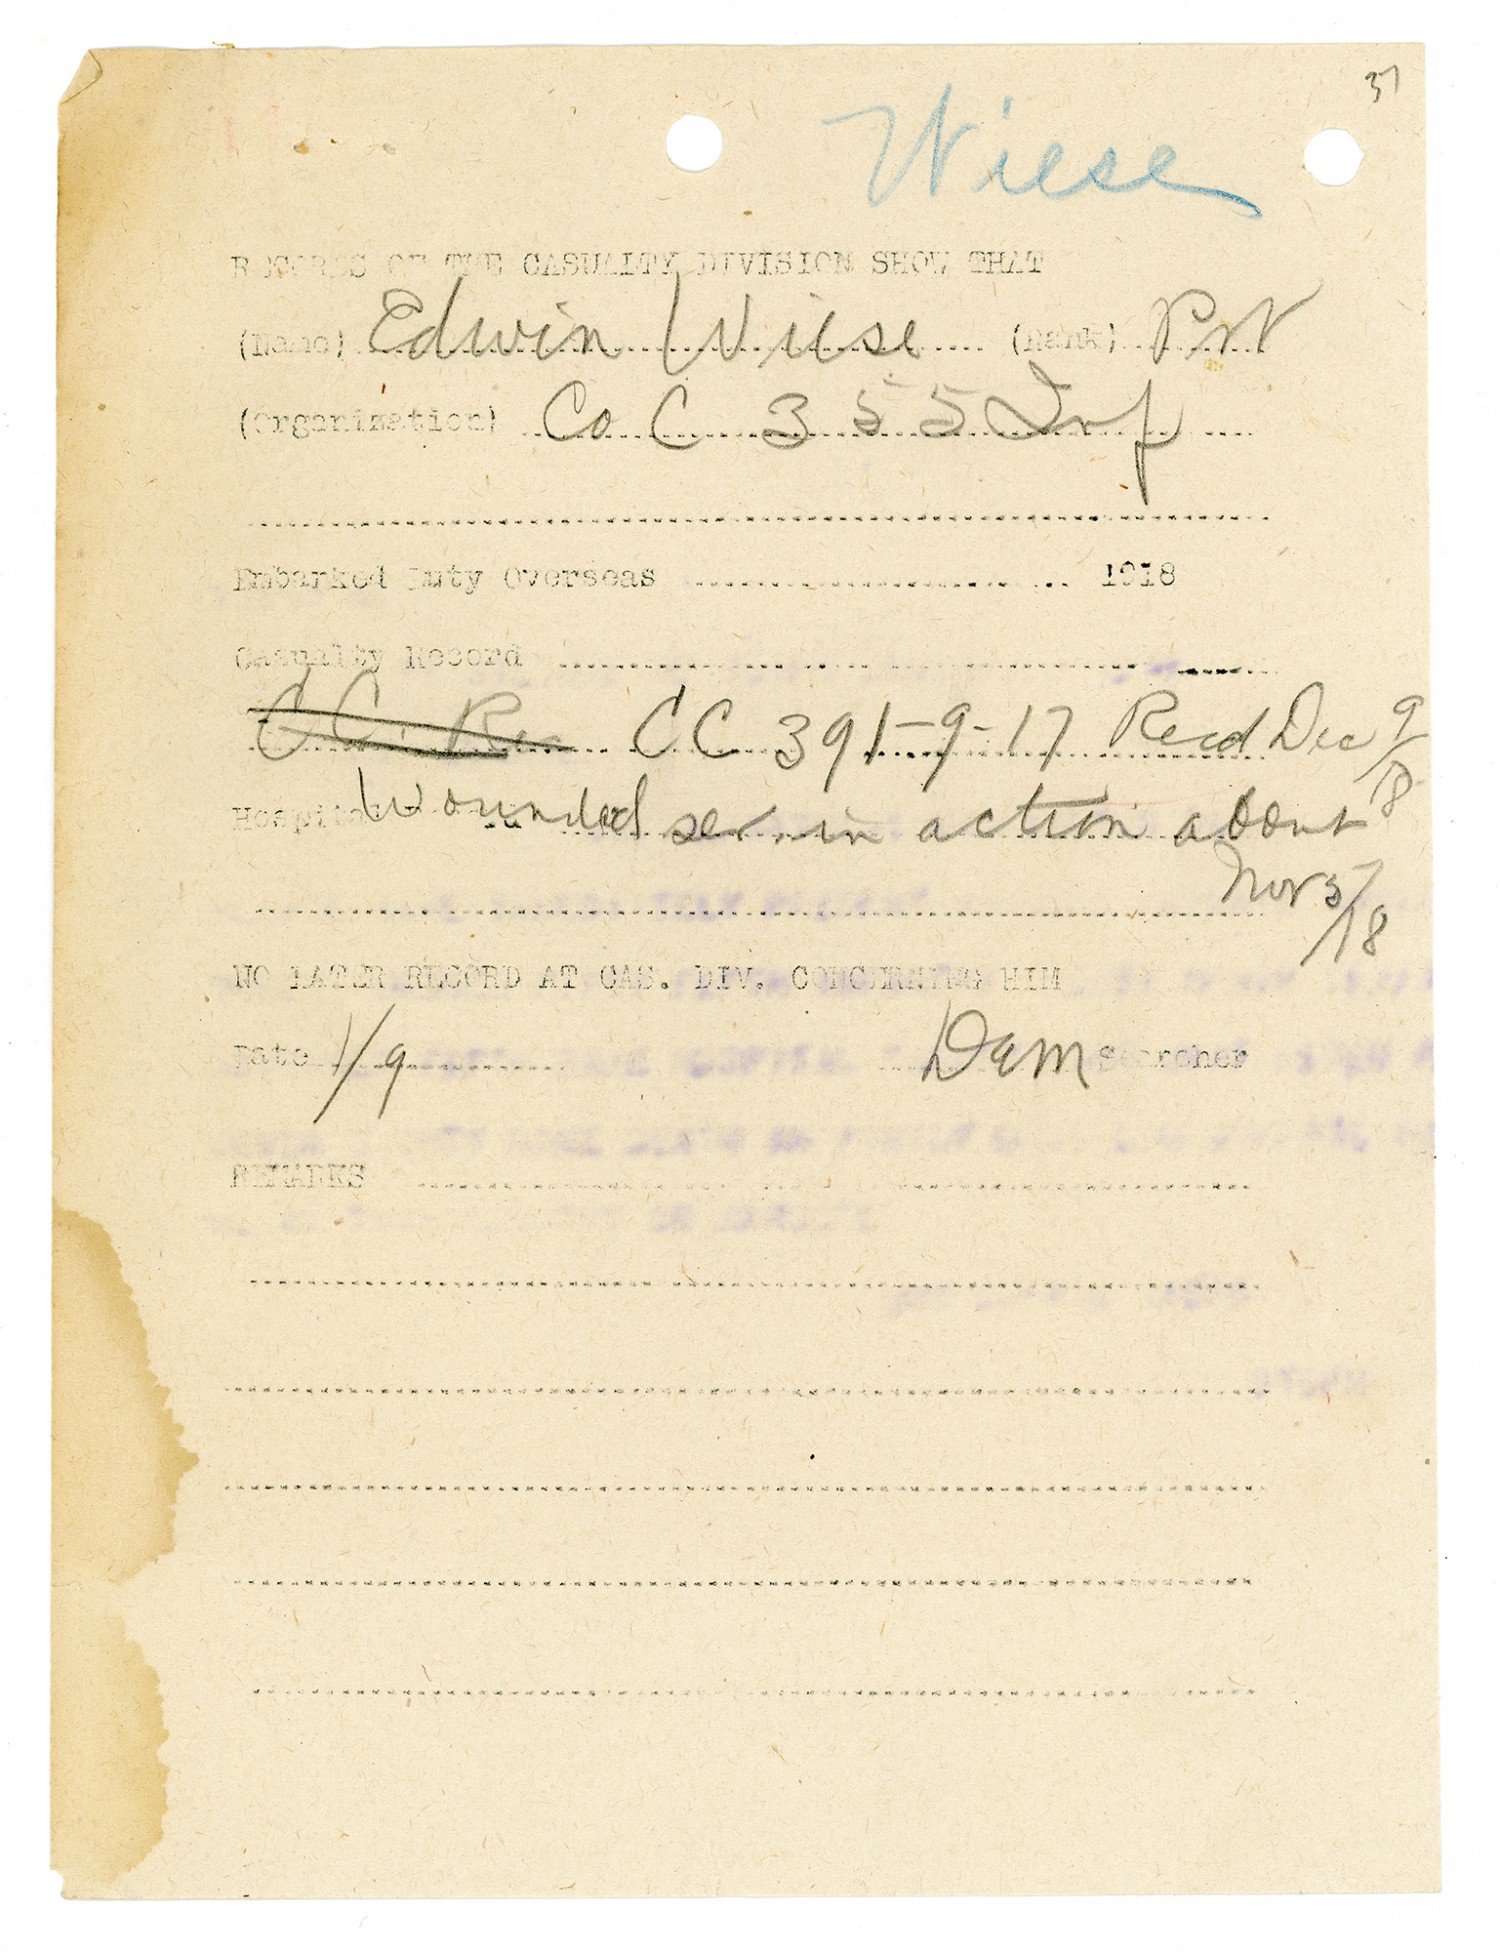 37
Wiese
RECORDS OF THE CASUALTY DIVISION SHOW THAT
(Name) Edwin Wiese (Rank) Pvt
(Organization) Co C 355 Inf
Embarked Duty Overseas 1918
Casualty Record
C C. Rec CC 391-9-17 Recd Dec 9/18
Hospital Wounded ser. in action about
Nov 5/18
NO LATER RECORD AT CAS. DIV. CONCERNING HIM
Date 1/9 Dam Searcher
REMARKS